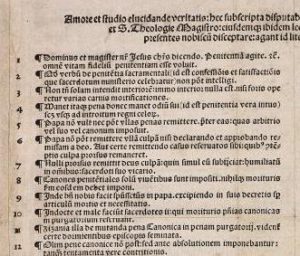 Amore et studio elucidande veritatis: hec subscripta disputabũ
et S. Theologie Magistro: eiusdemqȝ ibidem lec
presentes nobiscũ disceptare: agant id lit
1 ¶ Dominus et magister nr̃ Jesus chr̃s dicendo. Penitentiã agite. zc̃.
omnẽ vitam fideliũ penitentiam esse voluit.
2 ¶ Qð verbũ de penitẽtia sacramentali: id est confessiõis et satisfactiõis
que sacerdotum ministerio celebratur) non põt intelligi.
3 ¶ Non tñ solam intendit interiorẽ: immo interior nulla est. nisi foris opetur
varias carnis mortificationes.
4 ¶ Manet itaqȝ pena donec manet odiũ sui (id est penitentia vera intus)
scȝ usqȝ ad introitum regni celorum.
5 ¶ Papa nõ vult nec põt vllas penas remittere. p̃ter eas: quas arbitrio
vel suo vel canonum imposuit.
6 ¶ Papa nõ põt remittere vllã culpã nisi declarando et approbando remissam
a deo. Aut certe remittendo casus reservatos sibi: quibꝰ
culpa prorsus remaneret.
7 ¶ Nulli prorsus remittit deus culpã: quin simul eũ subijciat: humiliatũ
in omnibus: sacerdoti suo vicario.
8 ¶ Canones penitẽtiales solũ viuẽtibus sunt impositi. nihilqȝ morituris
ẽm eosdẽ debet imponi.
9 ¶ Inde bñ nobis facit sp̃ussctũs in papa. excipiendo in suis decretis sp
articulũ mortis et necessitatis.
10 ¶ Indocte et male faciũt sacerdotes ii: qui morituris pñias canonicas
in purgatorium reseruant.
11 ¶ Zizania illa de mutanda pena Canonica in penam purgatorij. vident̃
certe dormientibus episcopis seminata.
12 ¶ Olim pene canonice nõ post: sed ante absolutionem imponebantur:
tanqȝ tentamenta vere contritionis.